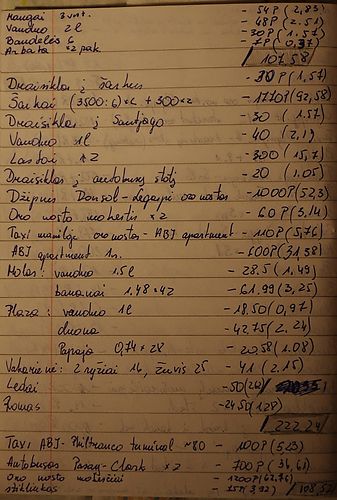 Mangai 3 vnt. - 54P (2,83)
Vanduo 2l - 48P (2.51)
Bandelės 6 - 30P (1.57)
Arbata ×2 pak. - 7P (0,37)
107.58
Draisiklas į Šarkus - 30P (1,57)
Šarkai (3500:6)×2 + 300×2 - 1770P (92,58)
Draisiklas į Santjago - 30 (1.57)
Vanduo 1l - 40 (2,19)
Lastai ×2 - 300 (15,7)
Draisiklas į autobusų stotį - 20 (1.05)
Džipnis Donsol-Legaspi oro uostas - 1000P (52,3)
Oro uosto mokestis ×2 - 60P (3.14)
Taxi manila oro uostas - ABJ apartment - 110P (5,76)
ABJ apartment 1n. - 600P (31,58)
Molas: vanduo 1.5l - 28.5 (1,49)
bananai 1.48×42 - 61.99 (3,25)
Plaza: vanduo 1l - 18.50 (0,97)
duona - 42.75 (2.24)
Papaja 0,74×28 - 20,58 (1.08)
Vakarienė: 2 ryžiai 14, žuvis 25 - 41 (2.15)
Ledai - 50 (20)
Romas - 24.50 (1,28)
222,24
Taxi ABJ-Philtranco terminal ~80 - 100P (5,23)
Autobusas Pasay-Clark ×2 - 700P (36,61)
Oro uosto mokesčiai - 1200P (62,76)
stikliukas - 75P (3,92) 108,52